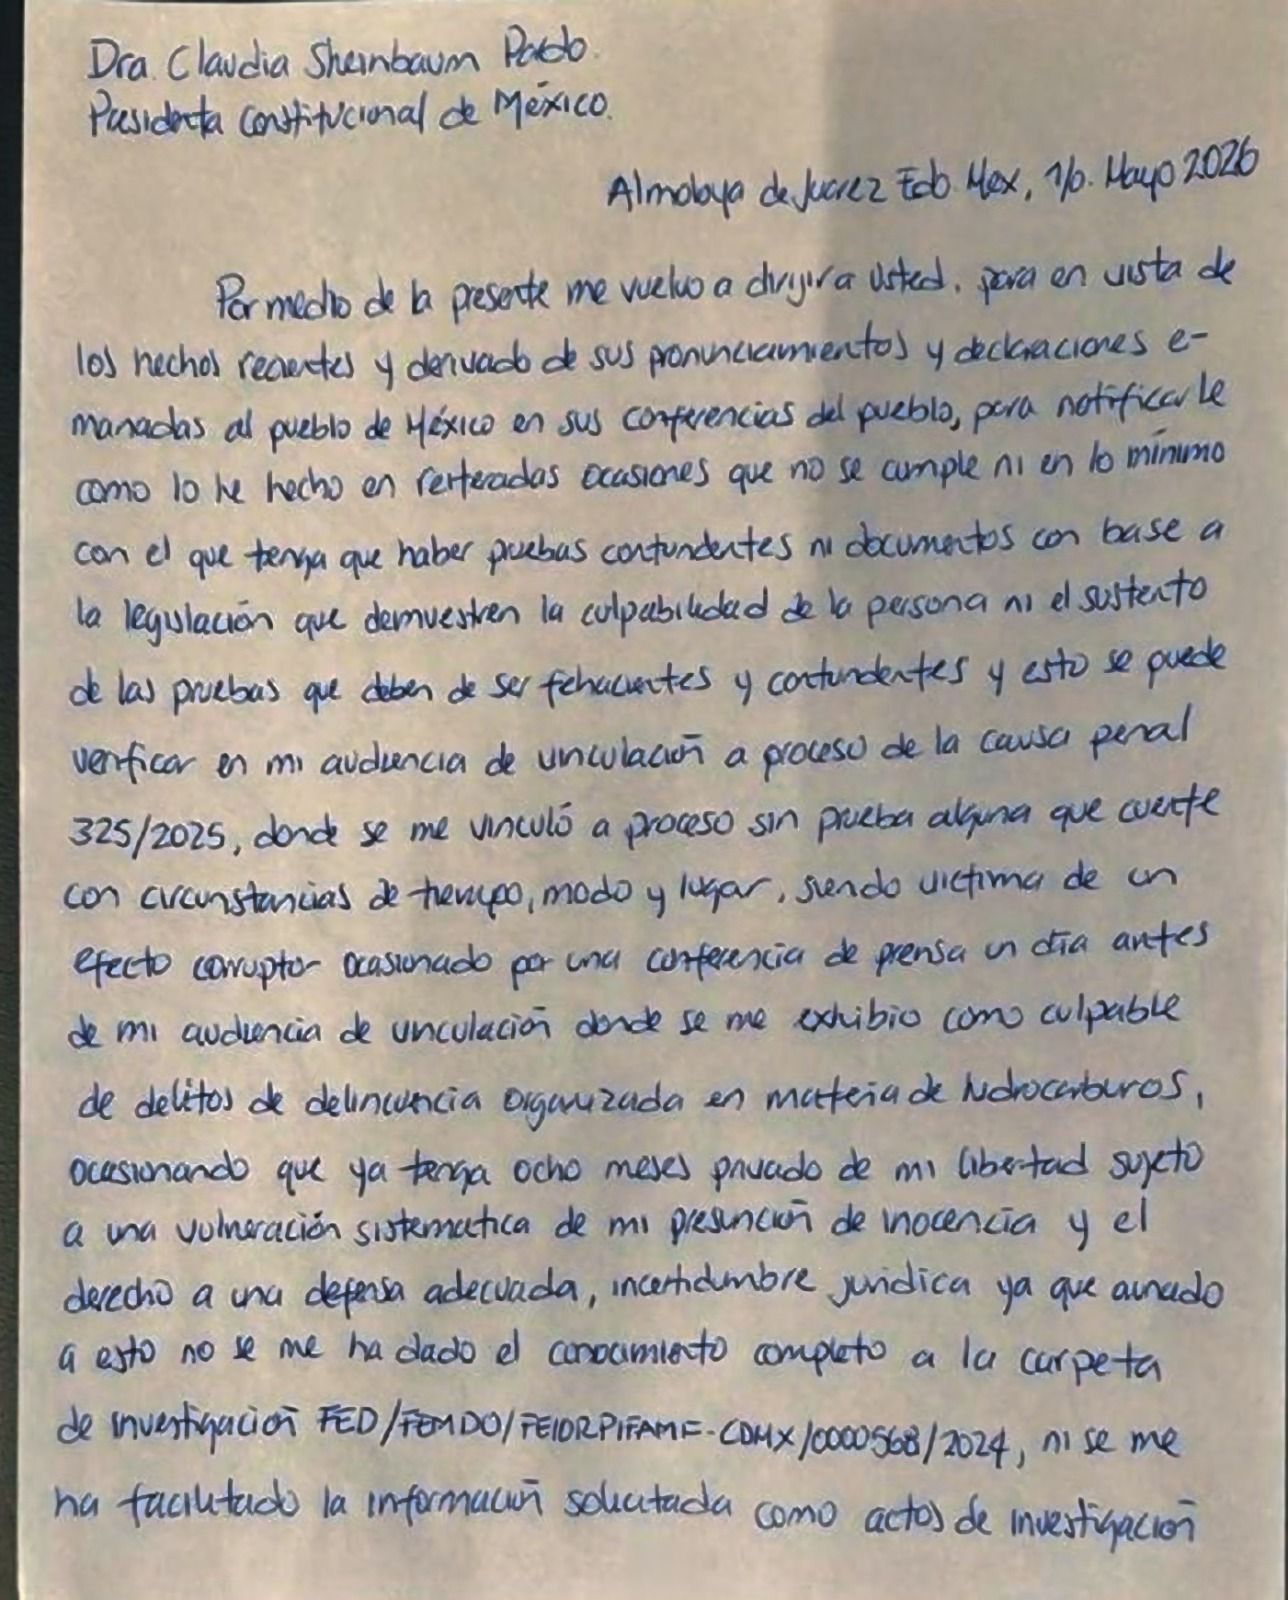 Dra. Claudia Sheinbaum Pardo.
Presidenta Constitucional de México.
Almoloya de Juarez Edo. Mex, Mayo 2026
Por medio de la presente me vuelvo a dirigir a Usted, para en vista de
los hechos recientes y derivado de sus pronunciamientos y declaraciones e-
manadas al pueblo de México en sus conferencias del pueblo, para notificarle
como lo he hecho en reiteradas ocasiones que no se cumple ni en lo mínimo
con el que tenga que haber pruebas contundentes ni documentos con base a
la legislación que demuestren la culpabilidad de la persona ni el sustento
de las pruebas que deben de ser fehacientes y contundentes y esto se puede
verificar en mi audiencia de vinculación a proceso de la causa penal
325/2025, donde se me vinculó a proceso sin prueba alguna que cuente
con circunstancias de tiempo, modo y lugar, siendo victima de un
efecto corruptor ocasionado por una conferencia de prensa un día antes
de mi audiencia de vinculación donde se me exhibio como culpable
de delitos de delincuencia organizada en materia de hidrocarburos,
ocasionando que ya tenga ocho meses privado de mi libertad sujeto
a una vulneración sistematica de mi presunción de inocencia y el
derecho a una defensa adecuada, incertidumbre juridica ya que aunado
a esto no se me ha dado el conocimiento completo a la carpeta
de investigación FED/FEMDO/FEIORPIFAMF-CDMX/0000568/2024, ni se me
ha facilitado la información solicitada como actos de investigación